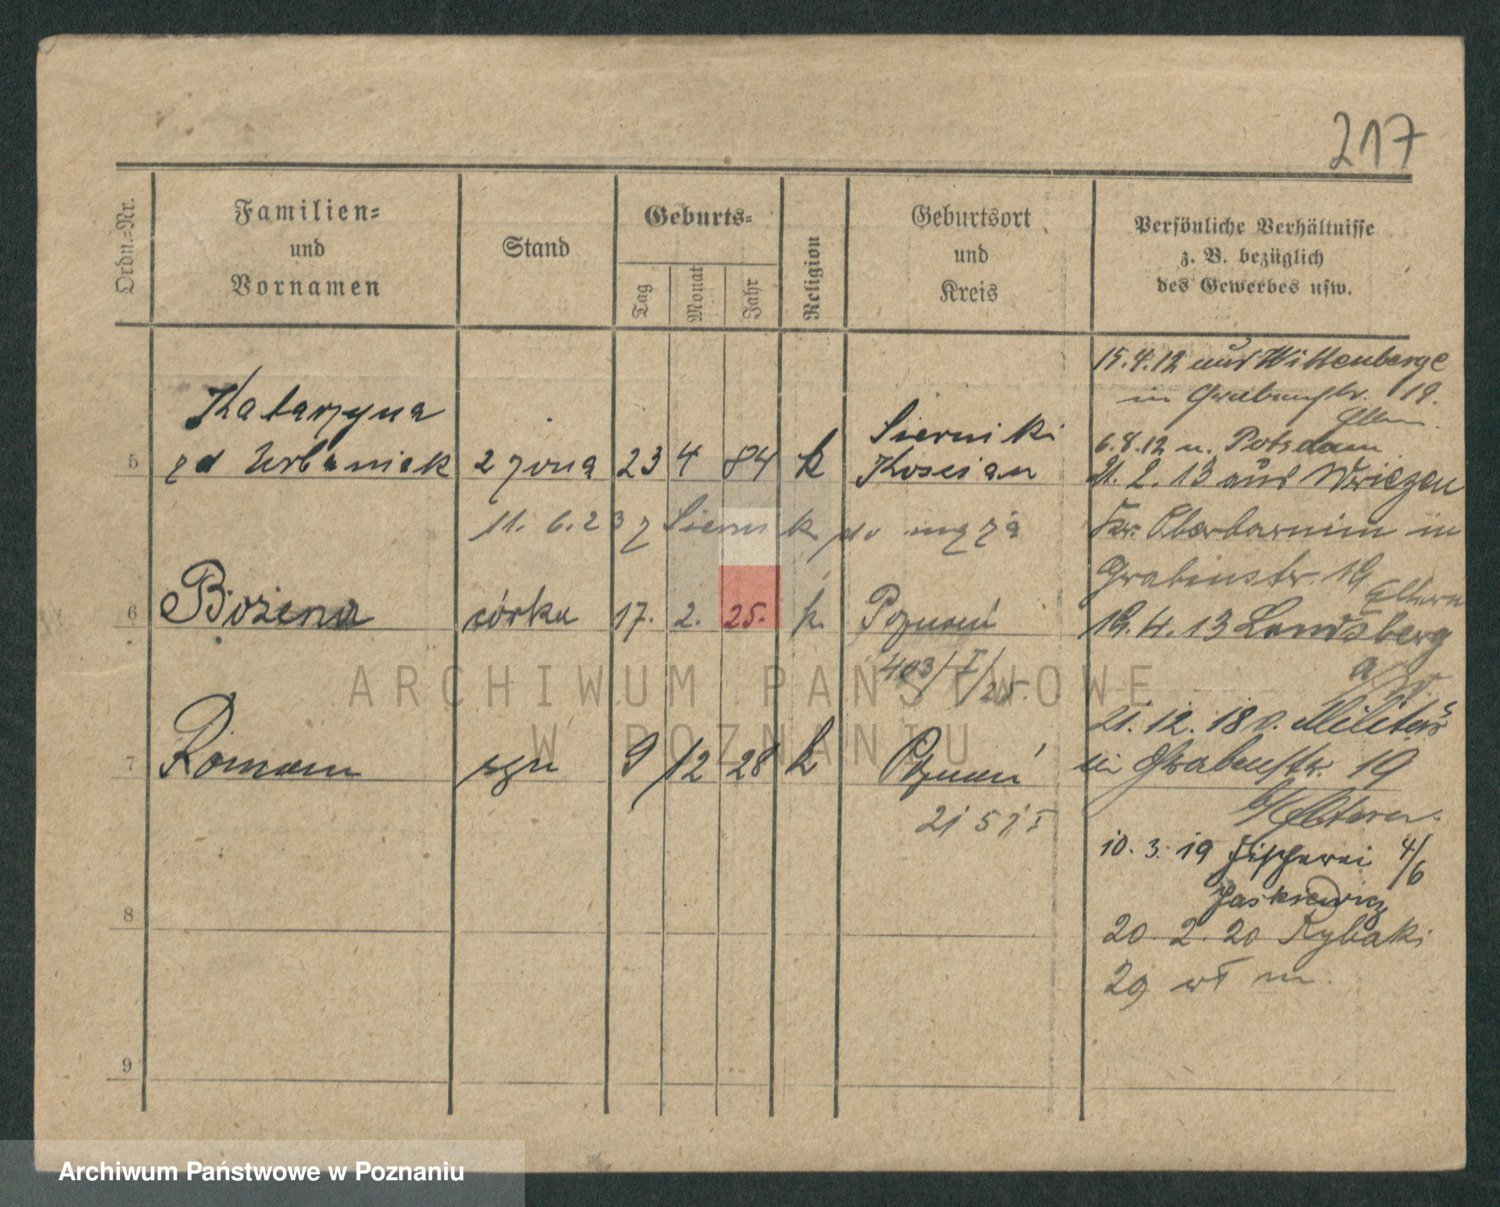 217
Ordn.-Nr.
Familien-
und
Vornamen
Stand
Geburts-
Tag
Monat
Jahr
Religion
Geburtsort
und
Kreis
Persönliche Verhältnisse
z. B. bezüglich
des Gewerbes usw.
Katarzyna
5 zd Urbaniak 2 żona 23 4 84 k Kościan
Sierniki
11. 6. 23 z Siernik do męża
6 Bożena córka 17. 2. 25. k. Poznań
403/I/25.
7 Roman syn 9 12 28 k Poznań
8
9
15.4.12 aus Wittenberge
in Grabenstr. 19.
Eltern.
6.8.12 n. Potsdam
21. 2. 13 aus Wriezen
Kr. Oberbarnim in
Grabenstr. 19
Eltern
19. 4. 13 Landsberg
a/W.
21. 12. 18 v. Militär
in Grabenstr. 19
b/Eltern.
10. 3. 19 Fischerei 4/6
Jaskiewicz
20. 2. 20 Rybaki
29 wł m.
ARCHIWUM PAŃSTWOWE
W POZNANIU
Archiwum Państwowe w Poznaniu